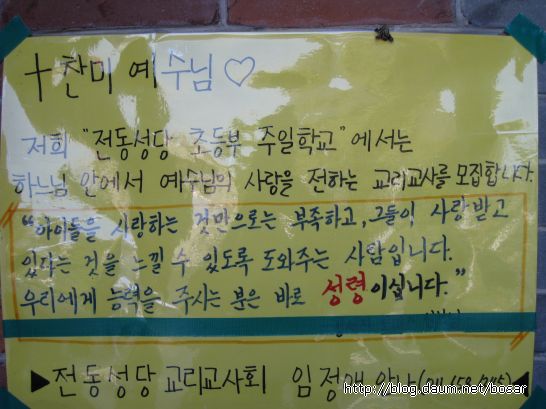 十 찬미 예수님 ♡
저희 "전동성당 초등부 주일학교" 에서는
하느님 안에서 예수님의 사랑을 전하는 교리교사를 모집합니다.
"아이들을 사랑하는 것만으로는 부족하고, 그들이 사랑받고
있다는 것을 느낄 수 있도록 도와주는 사람입니다.
우리에게 능력을 주시는 분은 바로 성령이십니다."
▶전동성당 교리교사회 임정애
http://blog.daum.net/bosar